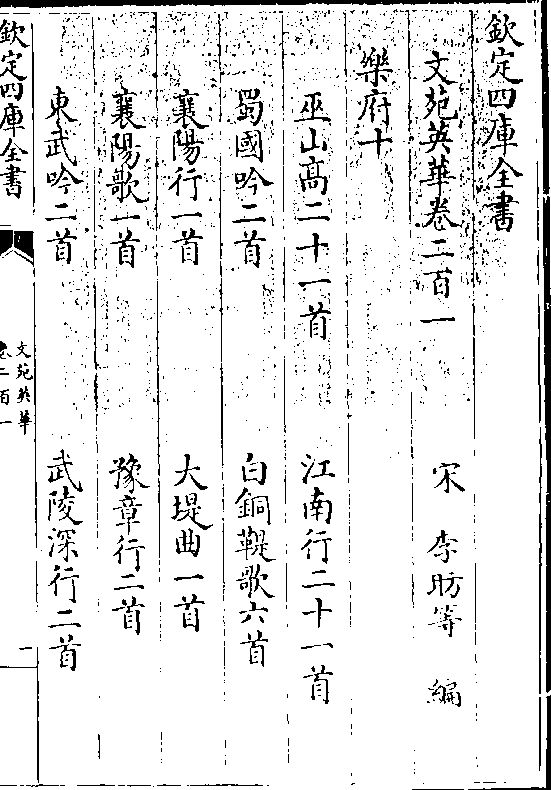 欽定四庫全書
文苑英華卷二百一
宋 李昉等 編
樂府十
巫山高二十一首 江南行二十一首
蜀國吟二首 白銅鞮歌六首
襄陽行一首 大堤曲一首
襄陽歌一首 豫章行二首
東武吟二首 武陵深行二首
欽定四庫全書
文苑英華
卷二百一
一